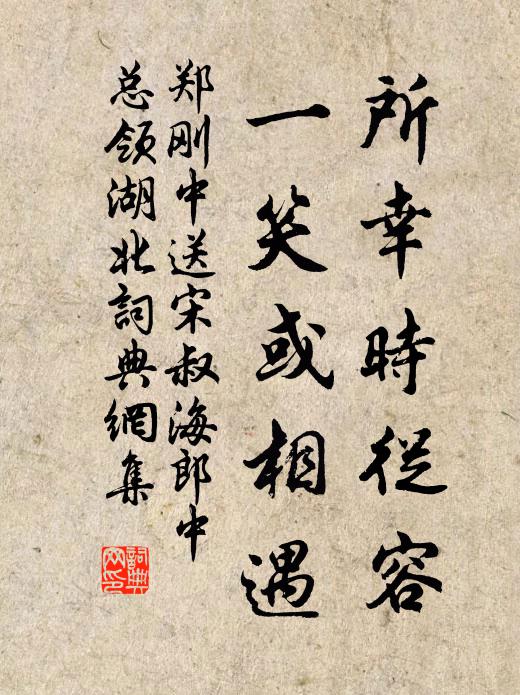 所幸時從容
一笑或相遇
郑刚中送宋叔海郎中
总领湖北詞典網集
詞典
网印